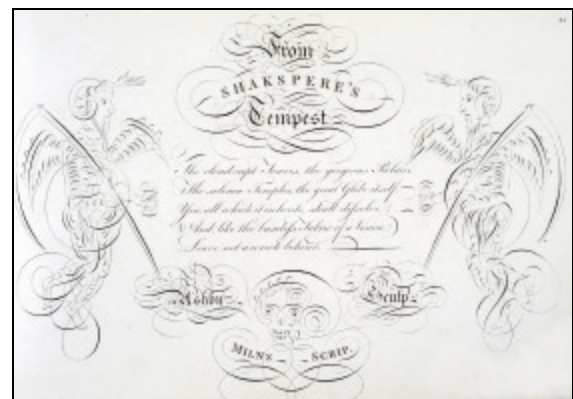 From
SHAKSPERE'S
Tempest
The cloud capt Towers, the gorgeous Palaces
The solemn Temples, the great Globe itself
Yea, all which it inherits, shall dissolve;
And like the baseless Fabric of a Vision
Leave not a wreck behind.
Ashby Sculp.
MILNS SCRIP.